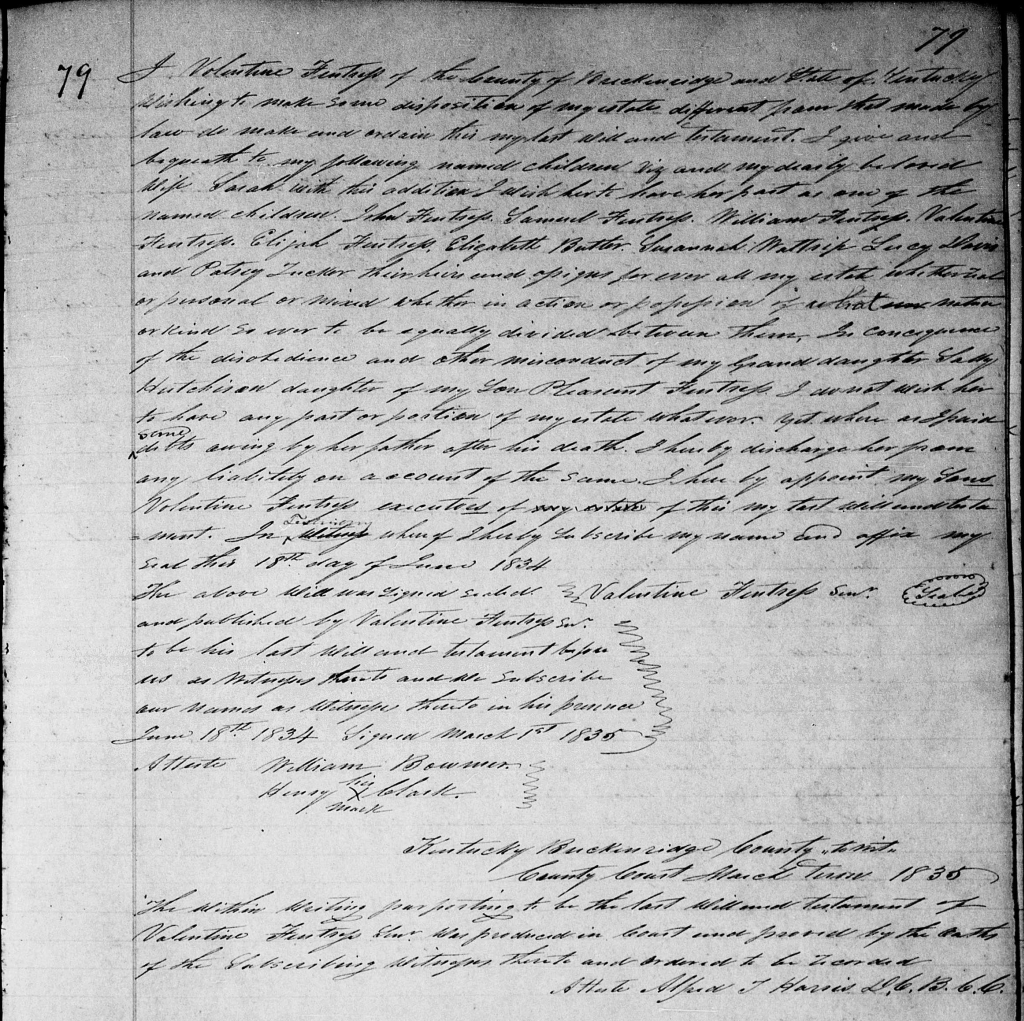 79
79
I Valentine Fentress of the County of Breckenridge and State of Kentucky
Wishing to make some disposition of my estate different from that made by
law do make and ordain this my last Will and testament. I give and
bequeath to my following named children Viz and my dearly beloved
Wife Sarah with this addition I wish her to have her part as one of the
named children. John Fentress. Samuel Fentress. William Fentress. Valentine
Fentress. Elijah Fentress. Elizabeth Butler. Susannah Waltrip Lucy Davis
and Patsey Tucker their heirs and assigns for ever all my estate whether real
or personal or mixed whether in action or possession of what nature
or kind so ever to be equally divided between them, In concequence
of the disobedience and other misconduct of my Grand daughter Sally
Hutchison daughter of my Son Pleasent Fentress I do not wish her
to have any part or portion of my estate whatever. yet where as I paid
some
debts owing by her father after his death. I hereby discharge her from
any liability on account of the same. I here by appoint my Sons
Valentine Fentress executors of my estate of this my last Will and testa
-ment. In testimony whereof I herby Subscribe my name and affix my
Seal this 18th day of June 1834
The above Will was Signed Sealed Valentine Fentress Senr. Seal
and published by Valentine Fentress Senr.
to be his last Will and testament before
us as Witnesses thereto and We Subscribe
our names as Witness thereto in his presence
June 18th 1834 Signed March 1st 1835
Atteste William Bowmer.
Henry his X Clark.
mark
Kentucky Breckenridge County, to wit,
County Court March Term 1835
The within Writing purporting to be the last Will and testament of
Valentine Fentress Senr. Was produced in Court and proved by the oaths
of the Subscribing Witnesses thereto and ordered to be recorded
Atteste Alfred T Harris D. C. B. C. C.